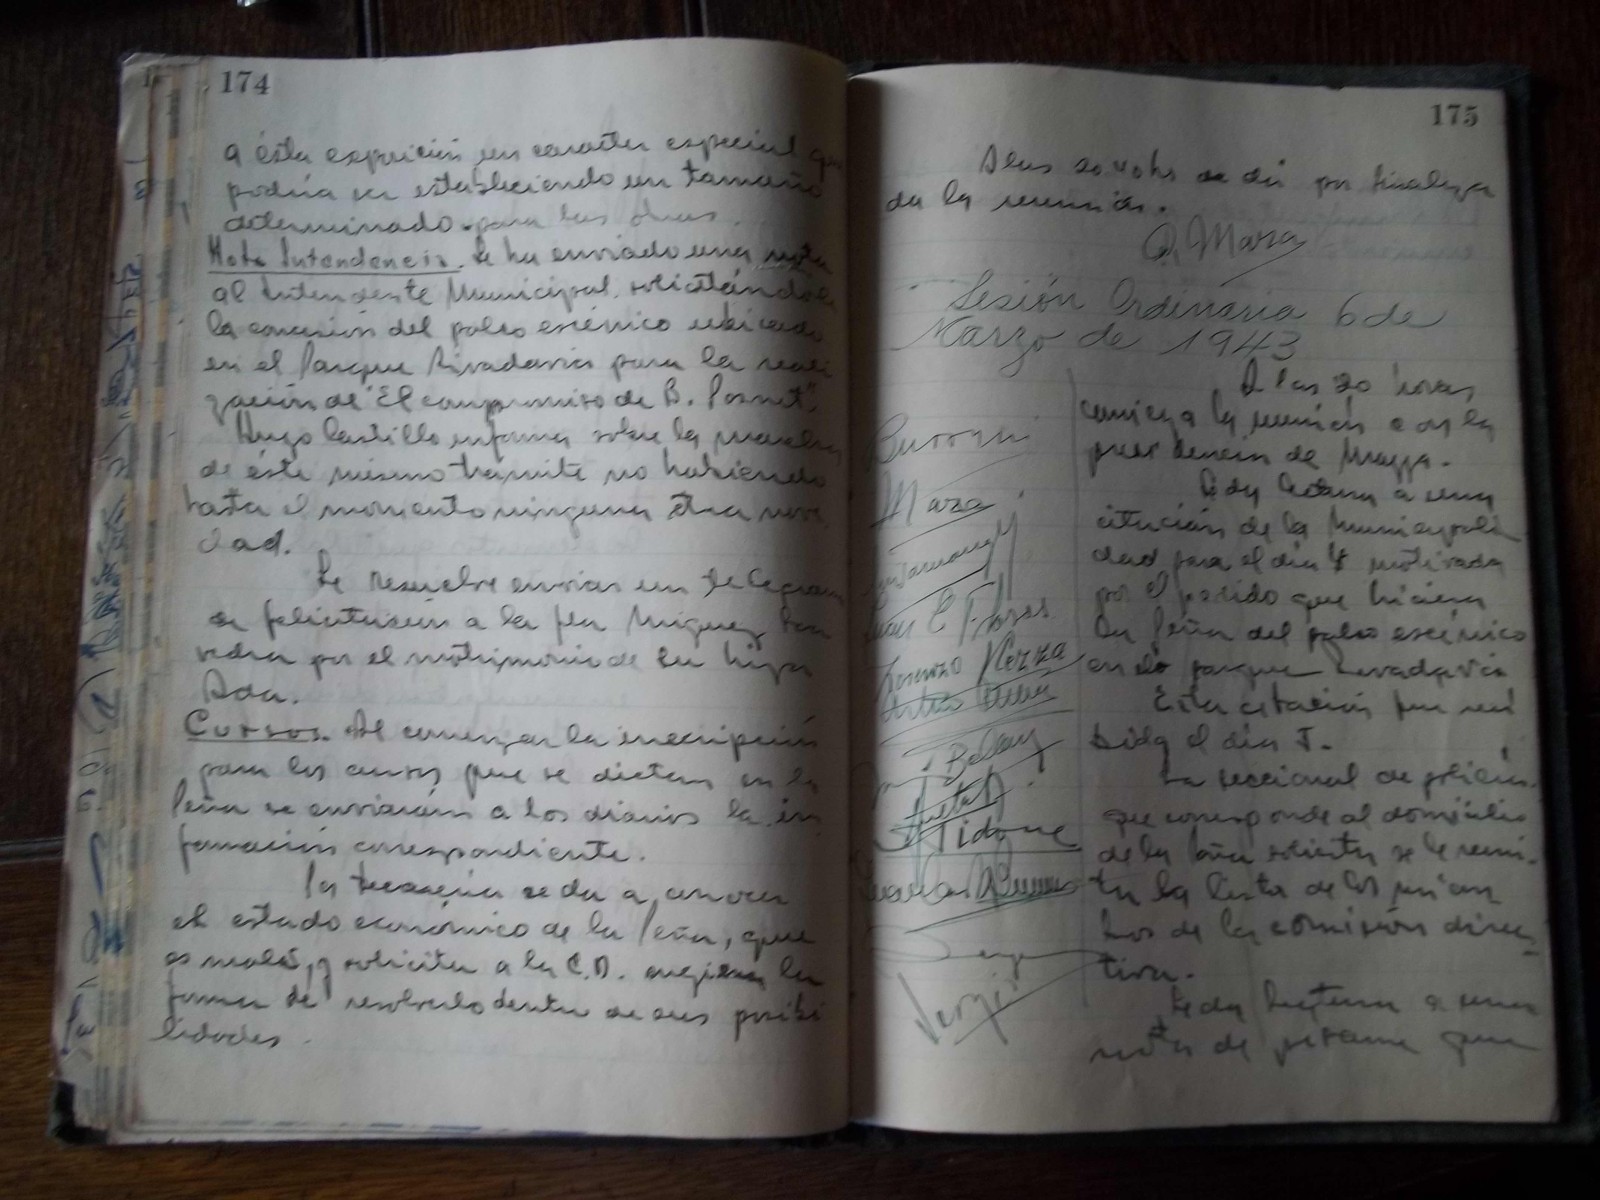 174
a ésta exposición un caracter especial que
podría ser estableciendo un tamaño
determinado para las obras.
Nota Intendencia. Se ha enviado una nota
al Intendente Municipal solicitándole
la concesión del palco escénico ubicado
en el Parque Rivadavia para la reali
zación de "El compromiso de B. Posnet".
Hugo Castillo informa sobre la marcha
de éste mismo trámite no habiendo
hasta el momento ninguna otra nove
dad.
Se resuelve enviar un telegrama
de felicitación a la fla Miguez
por el matrimonio de su hija
Ada.
Cursos. Al comenzar la inscripción
para los cursos que se dictan en la
Peña se enviarán a los diarios la in
formación correspondiente.
La tesorería se da a conocer
el estado económico de la Peña, que
es malo, y solicita a la C.D. sugiera la
forma de resolverlo dentro de sus posibi
lidades.
175
A las se da por finaliza
da la reunión.
Maza
Sesión Ordinaria 6 de
Marzo de 1943
A las 20 horas
comienza la reunión con la
presidencia de Mazza.
Se da lectura a una
citación de la Municipali
dad para el día 4 motivada
por el pedido que hiciera
la Peña del palco escénico
en el parque Rivadavia
Esta citación fue reci
bida el día 5.
La seccional de policía
que corresponde al domicilio
de la Peña solicita se le remi
ta la lista de los miem
bros de la comisión direc
tiva.
Se da lectura a una
nota de que
Maza
Juan C Flores
Lorenzo
Tidone
Sergio